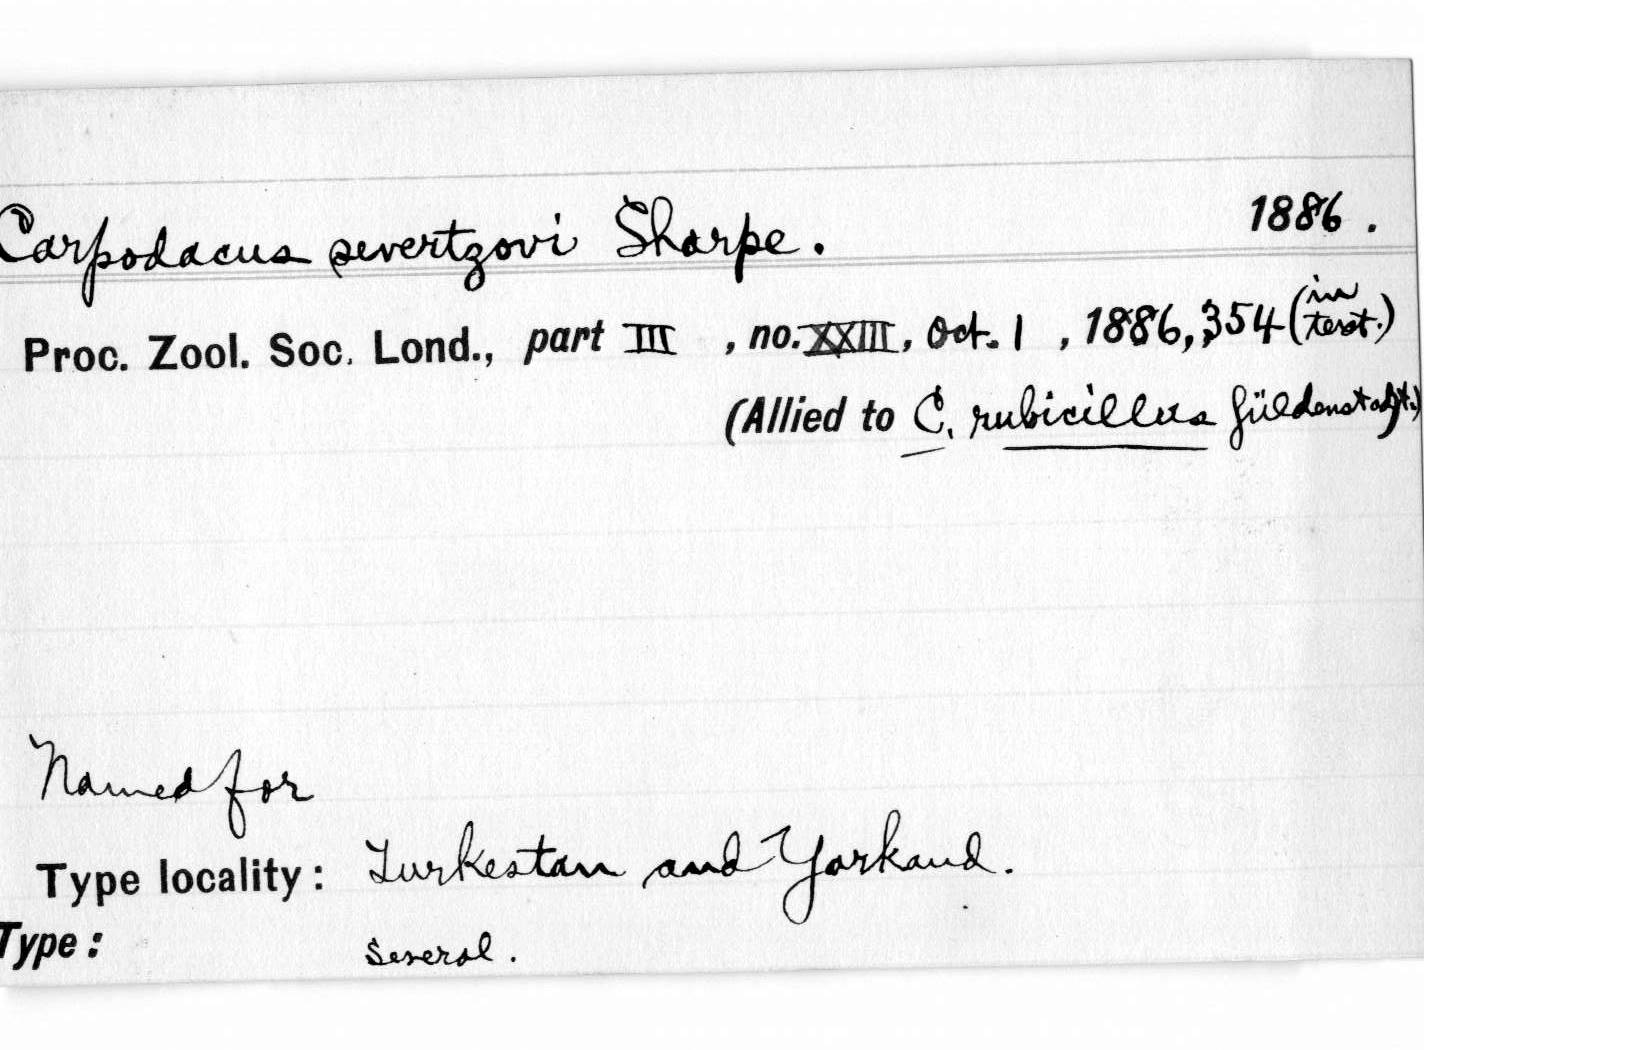 Carpodacus severtzovi Sharpe. 1886.
Proc. Zool. Soc. Lond., part III, no. XXIII, Oct. 1, 1886, 354 (in text.)
(Allied to C. rubicillus Güldenstadt.)
Named for
Type locality: Turkestan and Yarkand.
Type: Several.